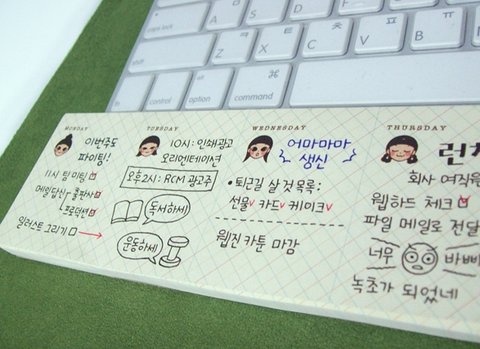 A S D F
Z X C V
control option command
MONDAY
이번주도
파이팅!
11시 팀 미팅
메일답신 출판사
프로덕션
일러스트 그리기
TUESDAY
10시: 인쇄광고
오리엔테이션
오후2시: RCM 광고주
독서하세!
운동하세!
WEDNESDAY
어마마마
생신
• 퇴근길 살 것 목록:
선물 카드 케이크
웹진 카툰 마감
THURSDAY
런치
회사 여직원
웹하드 체크
파일 메일로 전달
너무 바빠
녹초가 되었네